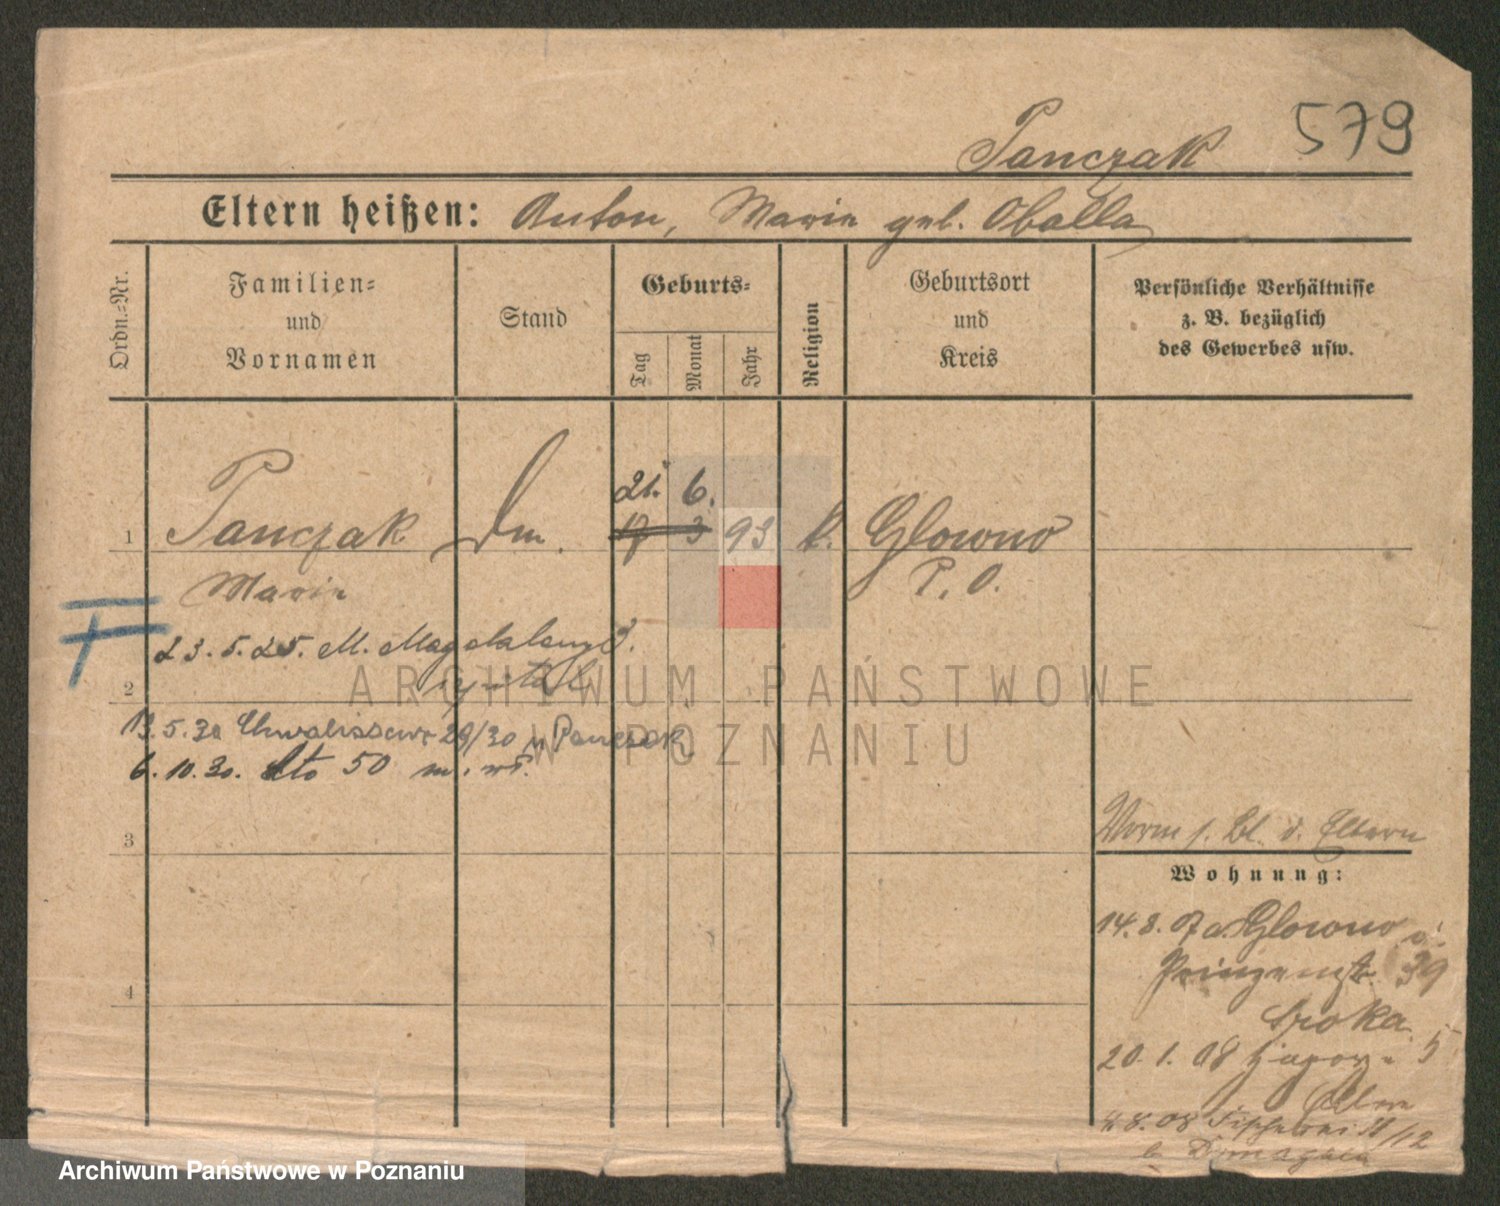 579
Panczak
Eltern heißen: Anton, Marie geb. Oballa
Ordn.=Nr.
Familien=
und
Vornamen
Stand
Geburts=
Tag
Monat
Jahr
Religion
Geburtsort
und
Kreis
Persönliche Verhältnisse
z. B. bezüglich
des Gewerbes usw.
21. 6.
1 Panczak Dm. 17 3 93 k. Glowno
Marie P. O.
F
23.5.25. M. Magdaleny 3.
szpital
2
13.5.30 Chwaliszewo 29/30 u Panczak
6.10.30. dto 50 m.
3
4
Worm s. Bl. d. Eltern
Wohnung:
14.8.07 a Glowno
Prinzenstr. 39
Sroka
20.1.08 5
4.8.08 Fischerei 12
b. Domagala
ARCHIWUM PAŃSTWOWE
W POZNANIU
Archiwum Państwowe w Poznaniu